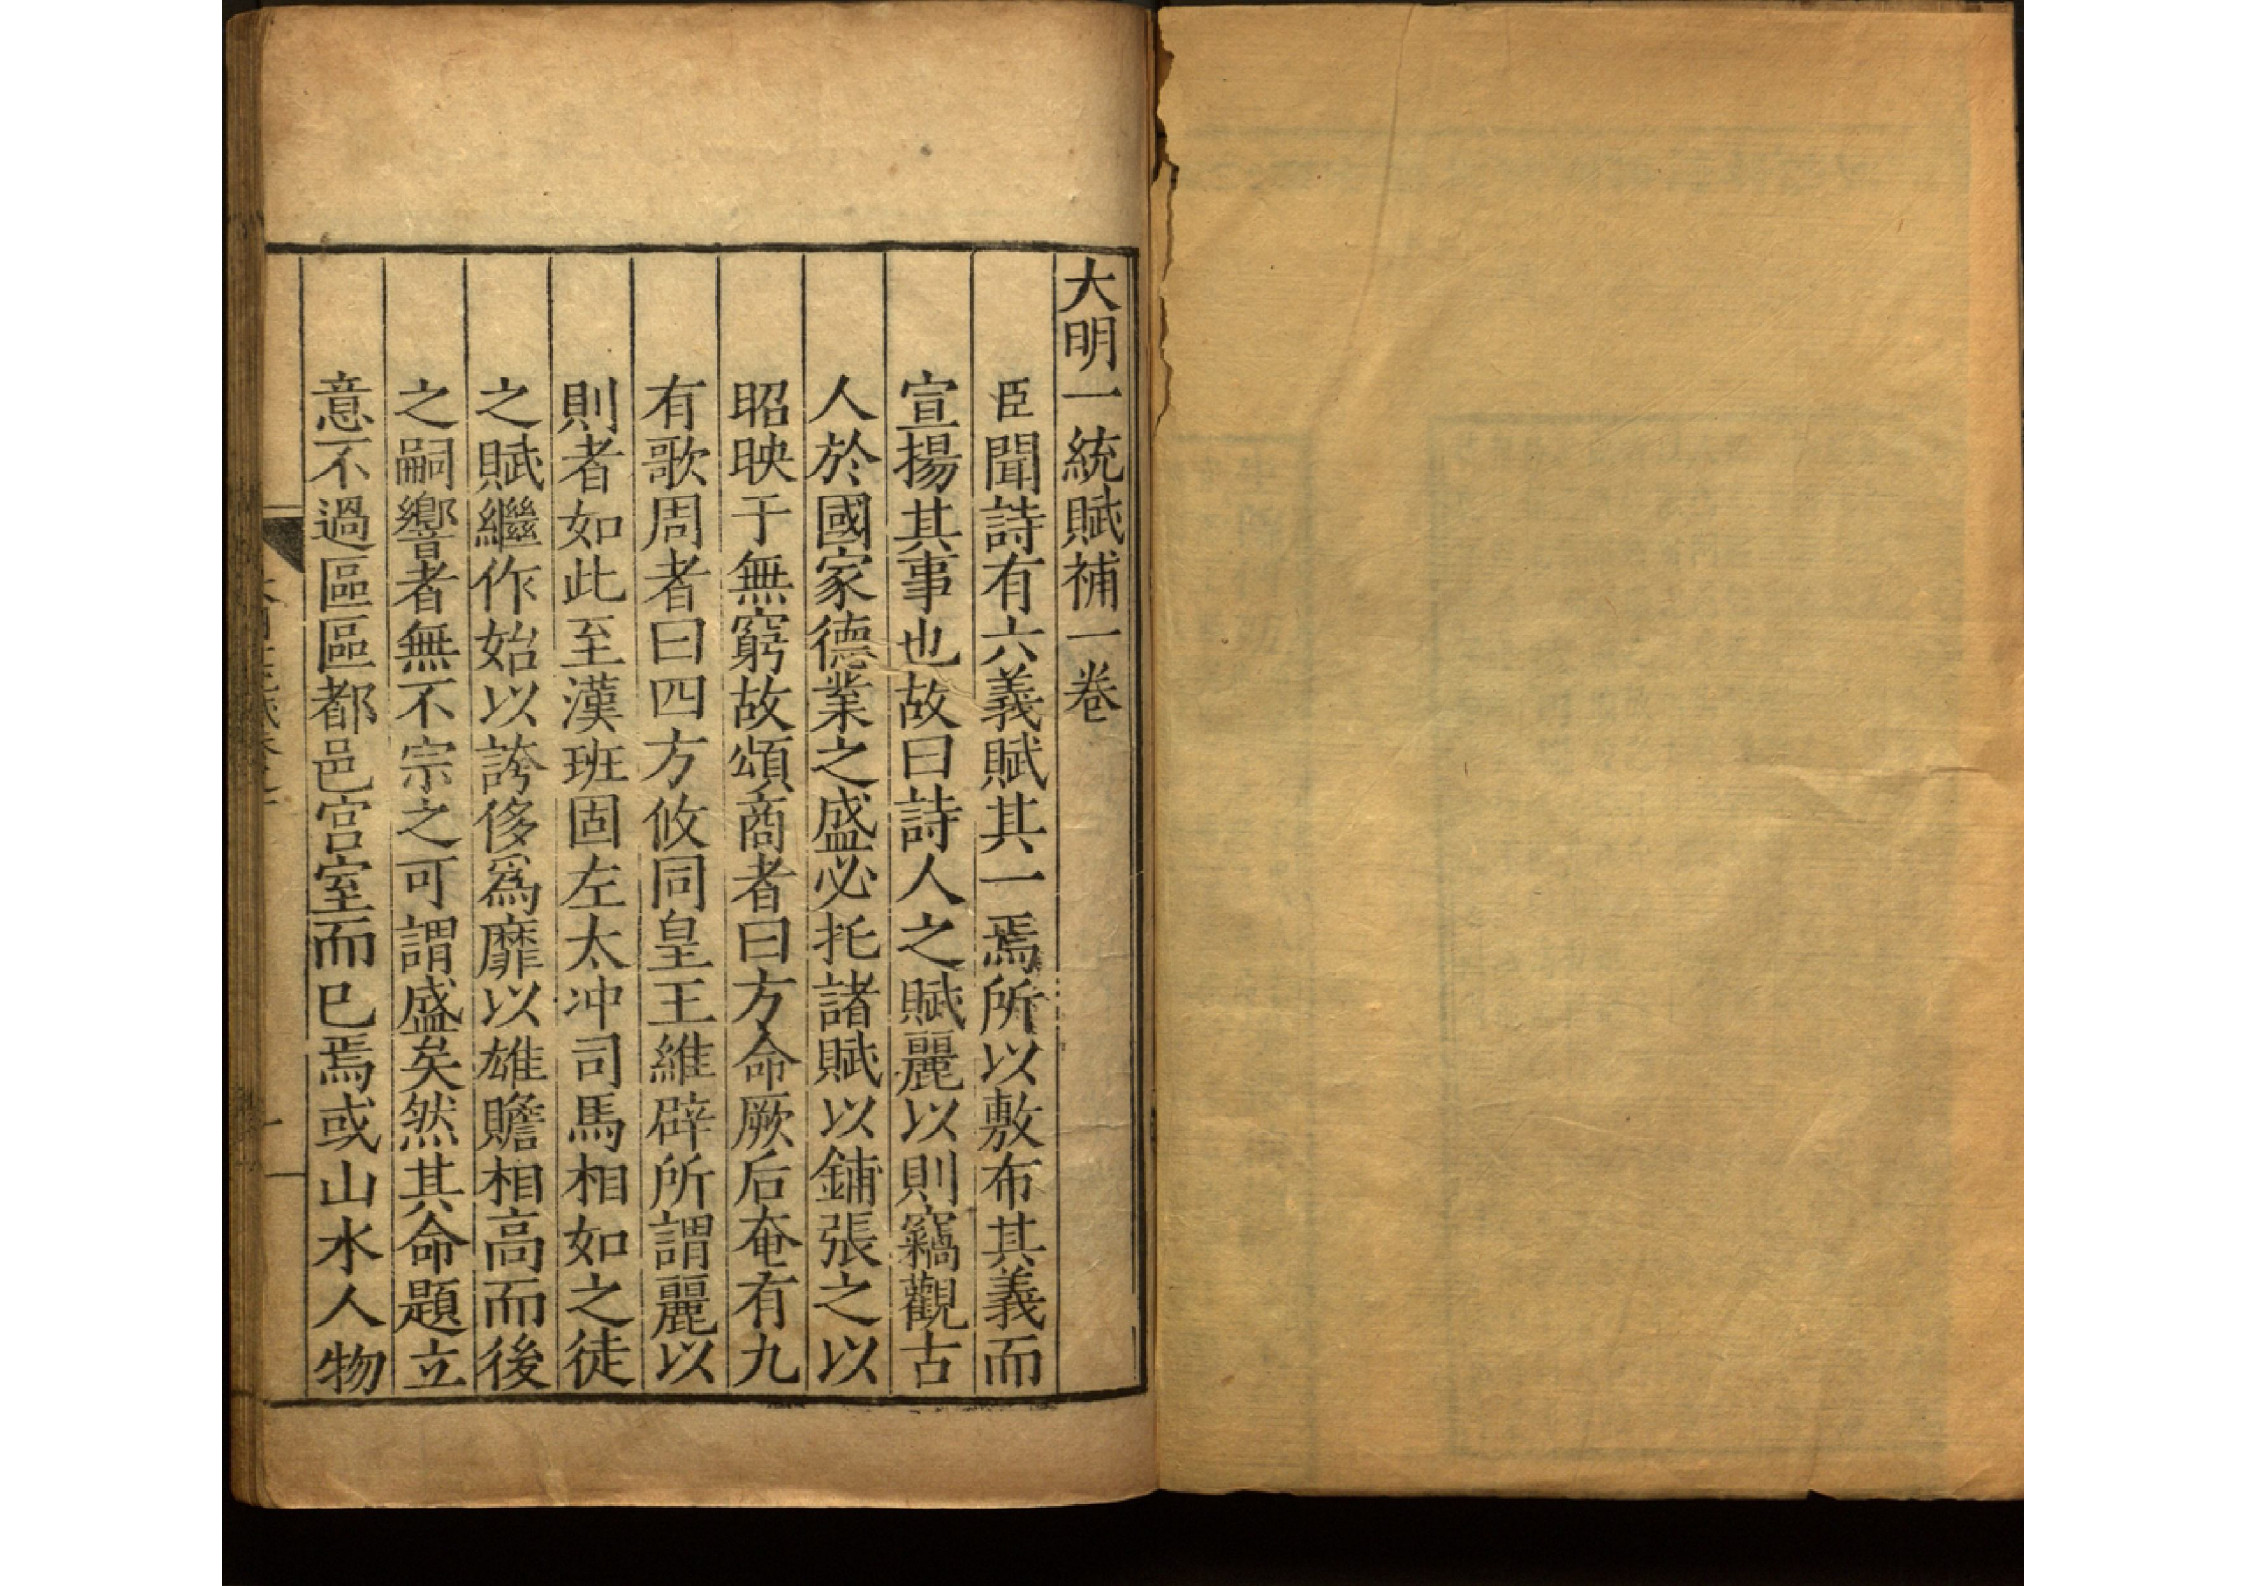 大明一統賦補一卷
臣聞詩有六義賦其一焉所以敷布其義而
宣揚其事也故曰詩人之賦麗以則竊觀古
人於國家德業之盛必托諸賦以鋪張之以
昭映于無窮故頌商者曰方命厥后奄有九
有歌周者曰四方攸同皇王維辟所謂麗以
則者如此至漢班固左太冲司馬相如之徒
之賦繼作始以誇侈爲靡以雄贍相高而後
之嗣響者無不宗之可謂盛矣然其命題立
意不過區區都邑宮室而已焉或山水人物